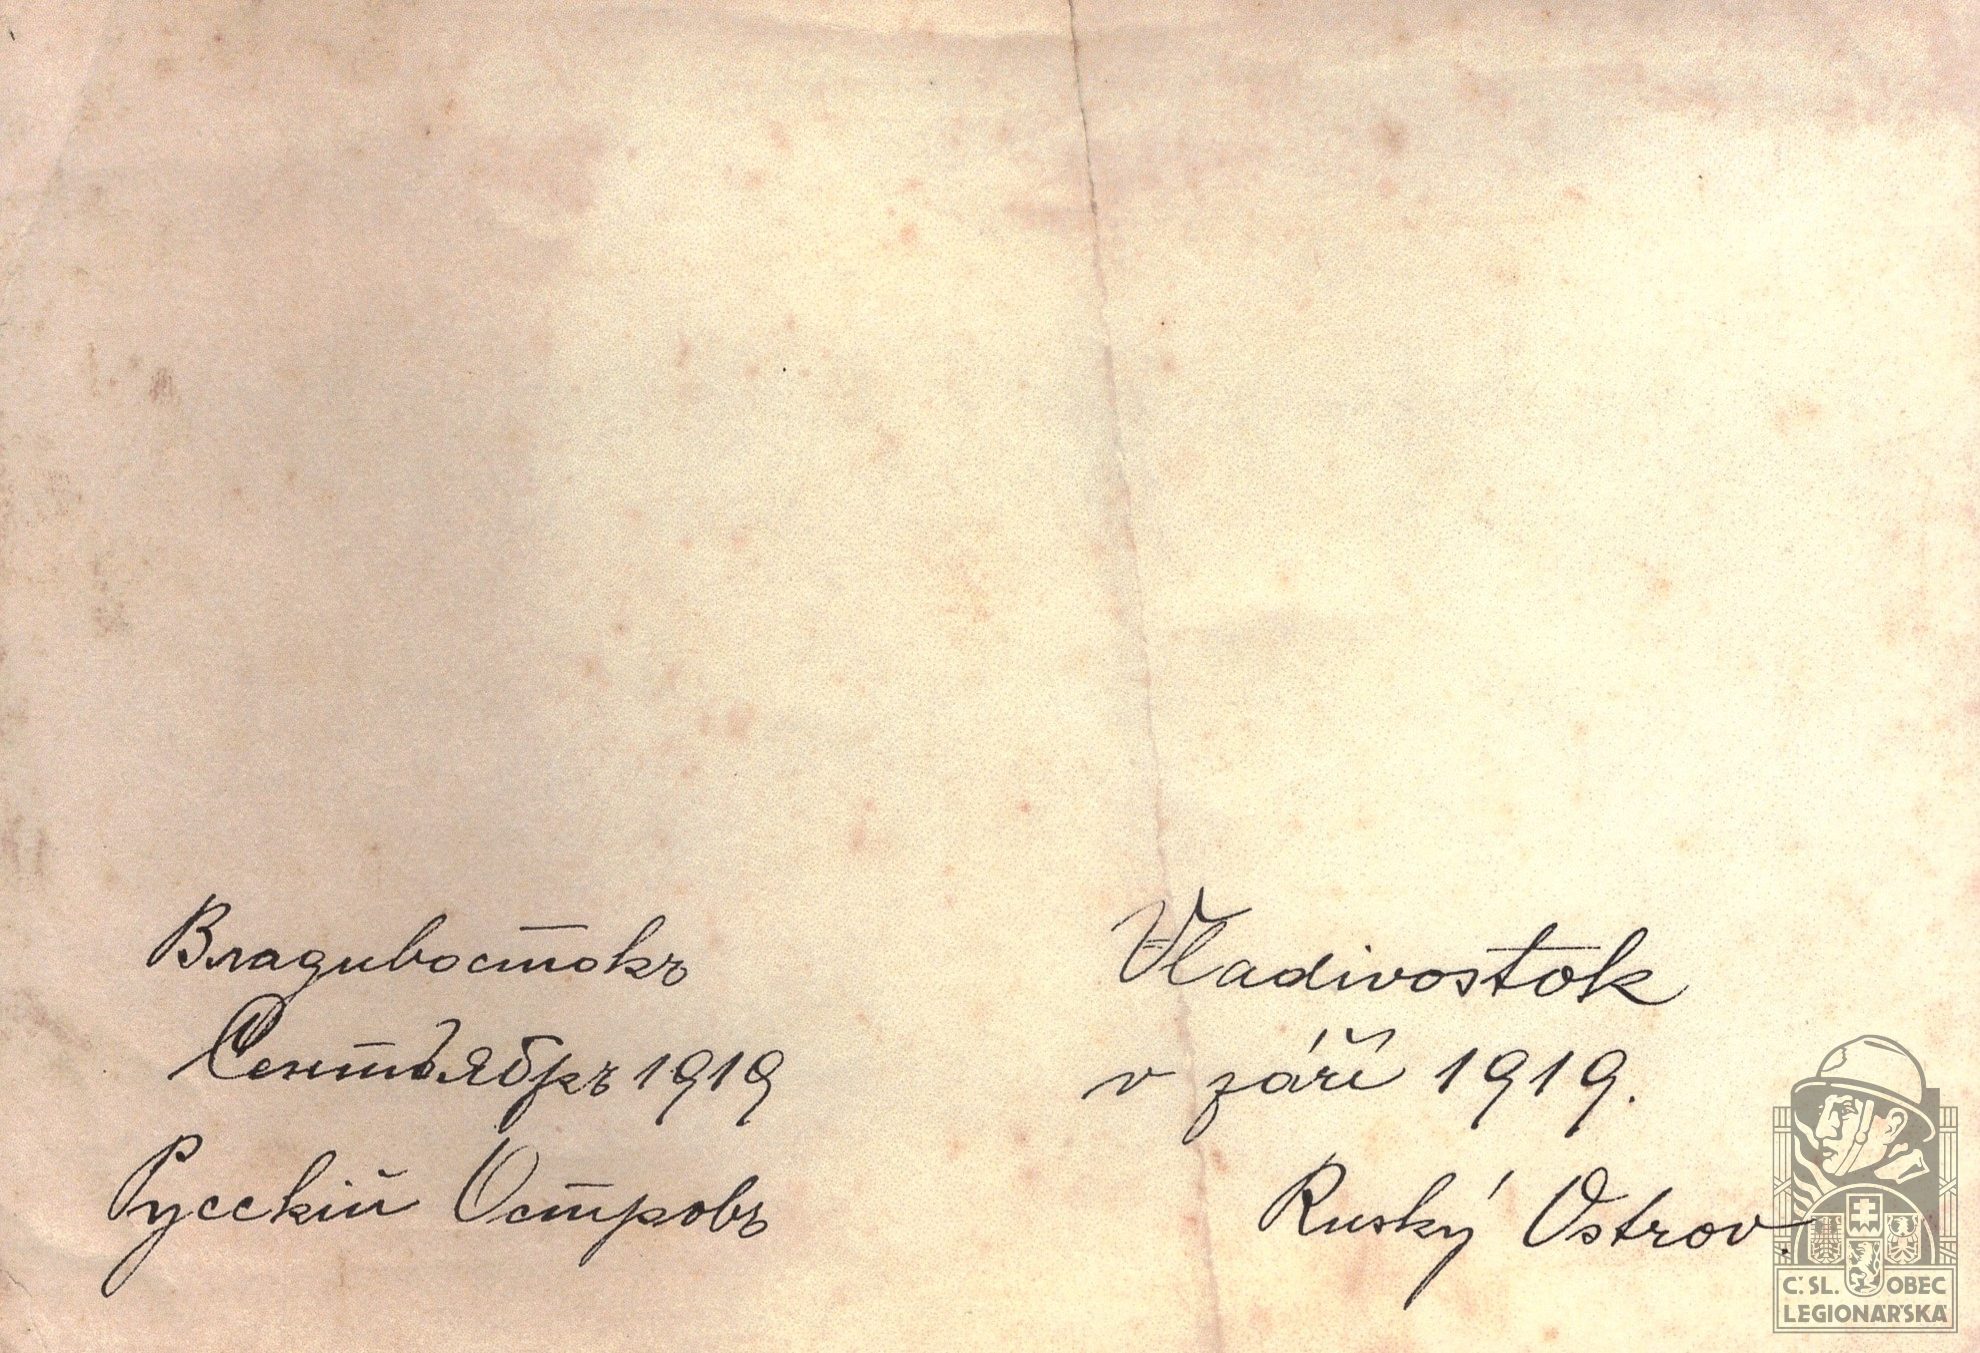 Владивостокъ
Сентѣябръ 1919
Русскій Островъ
Vladivostok
v září 1919.
Ruský Ostrov.
Č.SL. OBEC
LEGIONÁŘSKÁ